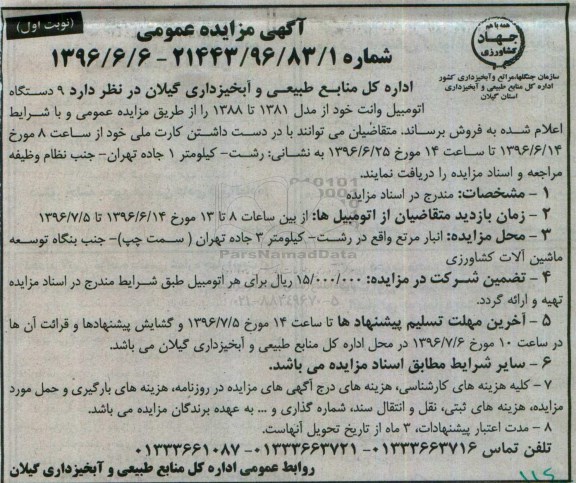 (نوبت اول)
آگهی مزایده عمومی
شماره ۲۱۴۴۳/۹۶/۸۳/۱ - ۱۳۹۶/۶/۶
همه با هم
جهاد
کشاورزی
سازمان جنگلها،مراتع وآبخیزداری کشور
اداره کل منابع طبیعی و آبخیزداری
استان گیلان
اداره کل منابع طبیعی و آبخیزداری گیلان در نظر دارد ۹ دستگاه
اتومبیل وانت خود از مدل ۱۳۸۱ تا ۱۳۸۸ را از طریق مزایده عمومی و با شرایط
اعلام شده به فروش برساند. متقاضیان می توانند با در دست داشتن کارت ملی خود از ساعت ۸ مورخ
۱۳۹۶/۶/۱۴ تا ساعت ۱۴ مورخ ۱۳۹۶/۶/۲۵ به نشانی: رشت- کیلومتر ۱ جاده تهران- جنب نظام وظیفه
مراجعه و اسناد مزایده را دریافت نمایند.
۱ - مشخصات: مندرج در اسناد مزایده
۲ - زمان بازدید متقاضیان از اتومبیل ها: از بین ساعات ۸ تا ۱۳ مورخ ۱۳۹۶/۶/۱۴ تا ۱۳۹۶/۷/۵
۳ - محل مزایده: انبار مرتع واقع در رشت- کیلومتر ۳ جاده تهران ( سمت چپ)- جنب بنگاه توسعه
ماشین آلات کشاورزی
ParsNamadData
۴ - تضمین شرکت در مزایده: ۱۵/۰۰۰/۰۰۰ ریال برای هر اتومبیل طبق شرایط مندرج در اسناد مزایده
تهیه و ارائه گردد.
۵ - آخرین مهلت تسلیم پیشنهاد ها تا ساعت ۱۴ مورخ ۱۳۹۶/۷/۵ و گشایش پیشنهادها و قرائت آن ها
در ساعت ۱۰ مورخ ۱۳۹۶/۷/۶ در محل اداره کل منابع طبیعی و آبخیزداری گیلان می باشد.
۶ - سایر شرایط مطابق اسناد مزایده می باشد.
۷ - کلیه هزینه های کارشناسی، هزینه های درج آگهی های مزایده در روزنامه، هزینه های بارگیری و حمل مورد
مزایده، هزینه های ثبتی، نقل و انتقال سند، شماره گذاری و ... به عهده برندگان مزایده می باشد.
۸ - مدت اعتبار پیشنهادات، ۳ ماه از تاریخ تحویل آنهاست.
تلفن تماس ۰۱۳۳۳۶۶۳۷۱۶- ۰۱۳۳۳۶۶۳۷۲۱- ۰۱۳۳۳۶۶۱۰۸۷
روابط عمومی اداره کل منابع طبیعی و آبخیزداری گیلان